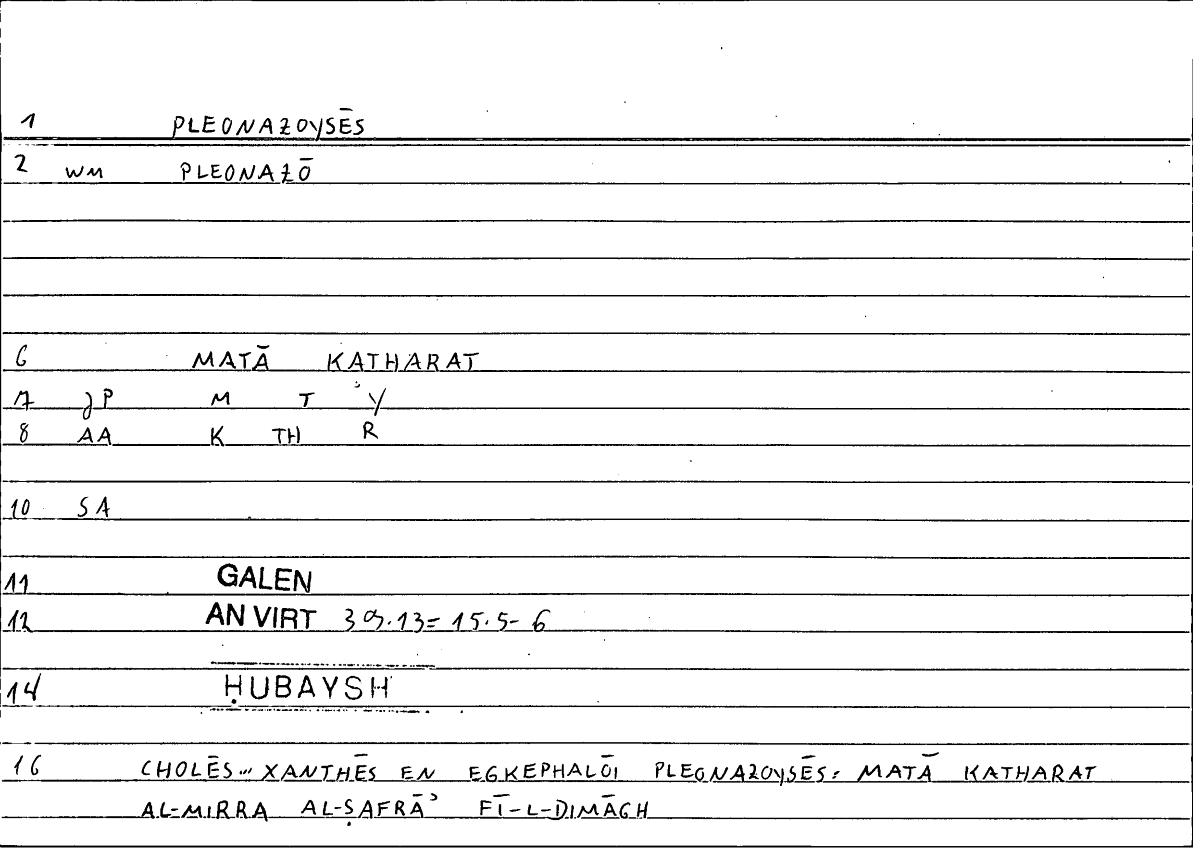 1 PLEONAZOYSĒS
2 WM PLEONAZŌ
6 MATĀ KATHARAT
7 JP M T ʾ Y
8 AA K TH R
10 SA
11 GALEN
12 AN VIRT 39.13= 15.5-6
14 ḤUBAYSH
16 CHOLĒS... XANTHĒS EN EGKEPHALŌI PLEONAZOYSĒS: MATĀ KATHARAT
AL-MIRRA AL-ṢAFRĀʾ FĪ-L-DIMĀGH